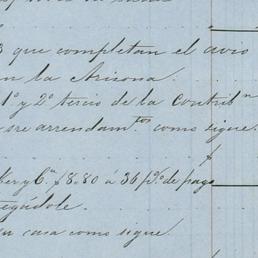 3 que completan el avio
en la Arizona.
1º y 2º tercio de la Contribn
sre arrendam.tos como sigue.
Ker y Ca $8.80 a 36 p% de pago
en casa como sigue